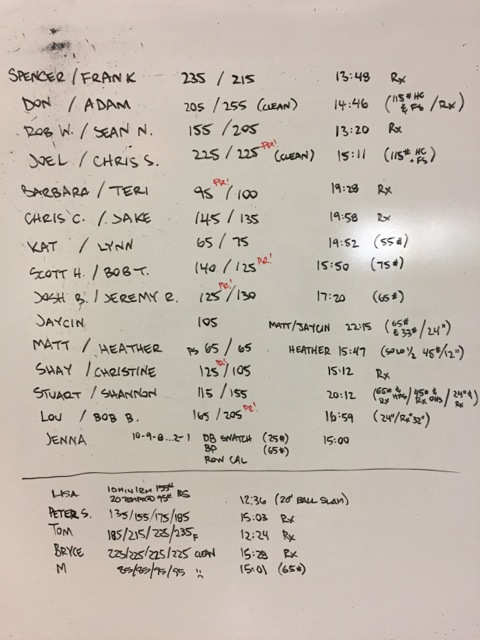 SPENCER / FRANK 235 / 215 13:48 Rx
DON / ADAM 205 / 255 (CLEAN) 14:46 (115# HC & FS / Rx)
ROB W. / SEAN N. 155 / 205 13:20 Rx
JOEL / CHRIS S. 225 / 225 PR! (CLEAN) 15:11 (115# HC + FS)
BARBARA / TERI 95 PR! / 100 19:28 Rx
CHRIS C. / JAKE 145 / 135 19:58 Rx
KAT / LYNN 65 / 75 19:52 (55#)
SCOTT H. / BOB T. 140 / 125 PR! 15:50 (75#)
JOSH B. / JEREMY R. 125 PR! / 130 17:20 (65#)
JAYCIN 105 MATT/JAYCIN 22:15 (65# & 33# / 24")
MATT / HEATHER PS 65 / 65 HEATHER 15:47 (SOLO 1/2 45#/12")
SHAY / CHRISTINE 125 PR! / 105 15:12 Rx
STUART / SHANNON 115 / 155 20:12 (65# & Rx / 45# & Rx OHS / 24" & Rx)
LOU / BOB B. 165 / 205 PR! 16:59 (24"/Rx 32")
JENNA 10-9-8...2-1 DB SNATCH (25#) 15:00
BP (65#)
ROW CAL
LISA 155# 12:36 (20# BALL SLAM)
95# BS
PETER S. 135/155/175/185 15:03 Rx
TOM 185/215/225/235F 12:24 Rx
BRYCE 225/225/225/225 CLEAN 15:28 Rx
M 85/85/95/95 15:01 (65#)